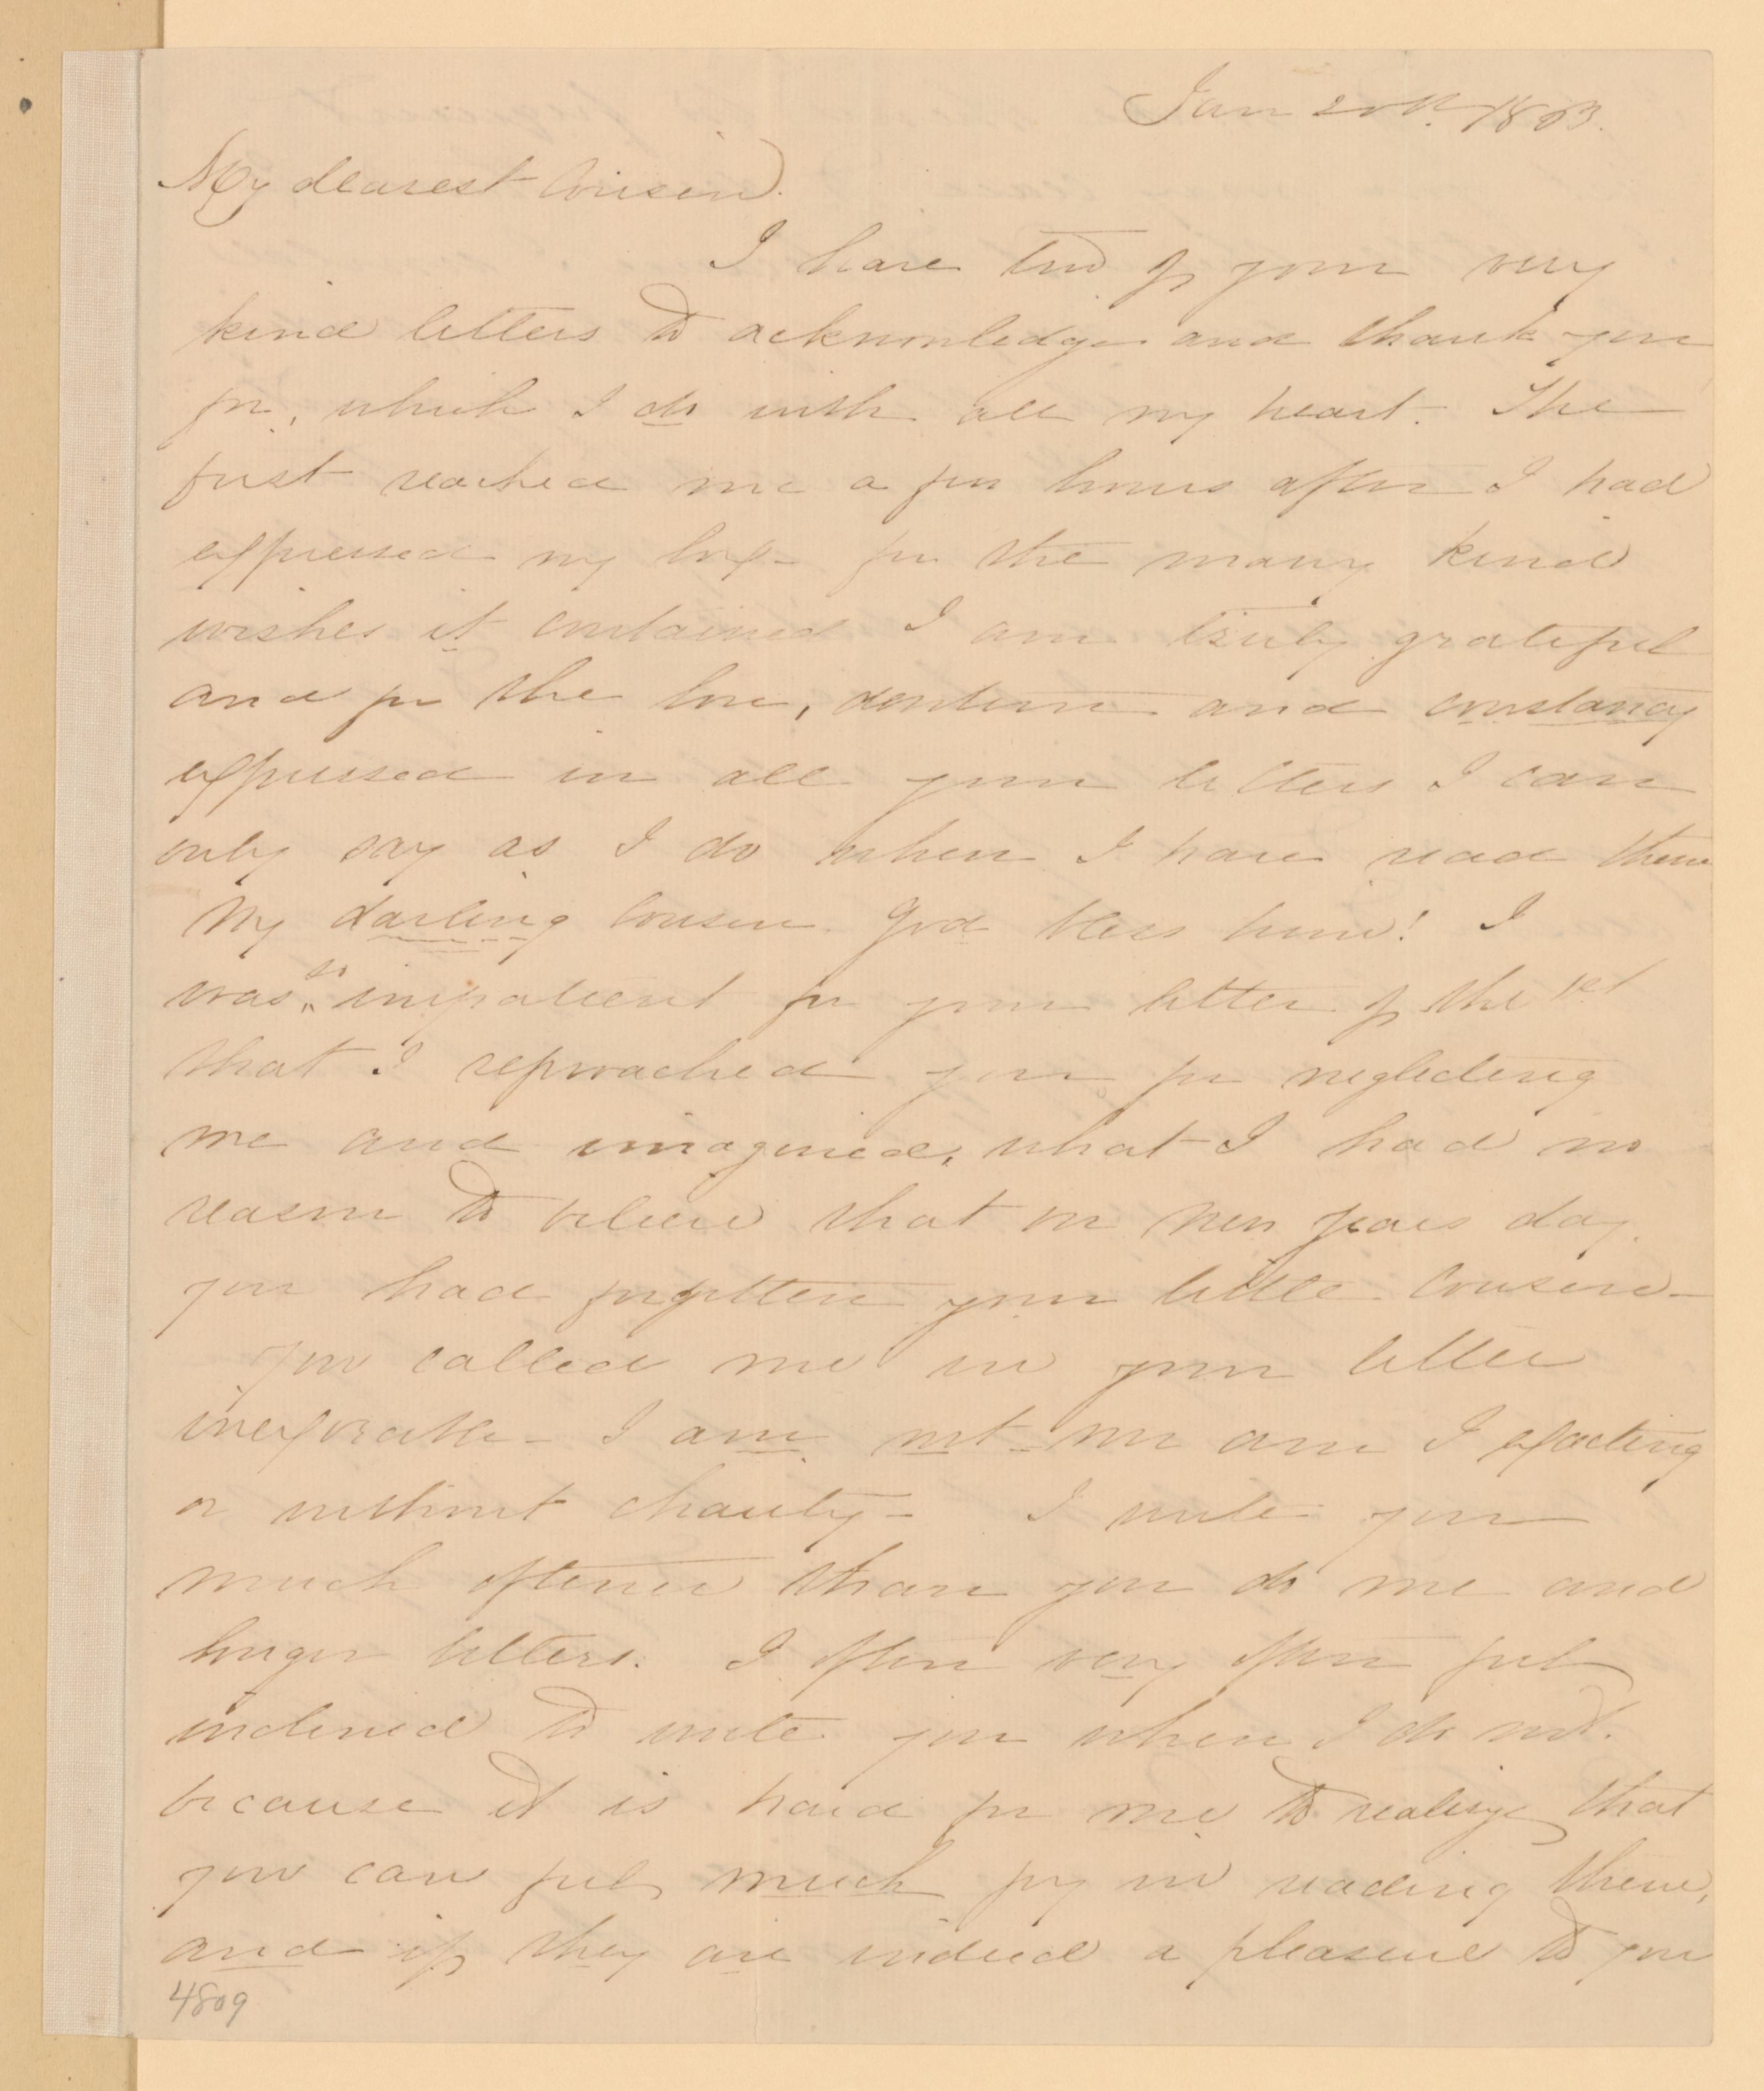 Jan 20th 1863.
My dearest Cousin.
I have two of your very
kind letters to acknowledge and thank you
for, which I do with all my heart. The
first reached me a few hours after I had
expressed my
for the many kind
wishes it contained I am truly grateful
and for the love, devotion and constancy
expressed in all your letters I can
only say as I do when I have read them
My darling Cousin God bless him! I
was so impatient for your letter of the 1st
that I reproached you for neglecting
me and imagined, what I had no
reason to believe that on new years day.
you had forgotten your little Cousin -
You called me in your letter
inexorable - I am not - nor am I exacting
or without charity - I write you
much oftener than you do me and
longer letters. I often very often feel
inclined to write you when I do not.
because it is hard for me to realize that
you can feel much joy in reading them,
and if they are indeed a pleasure to you
4809